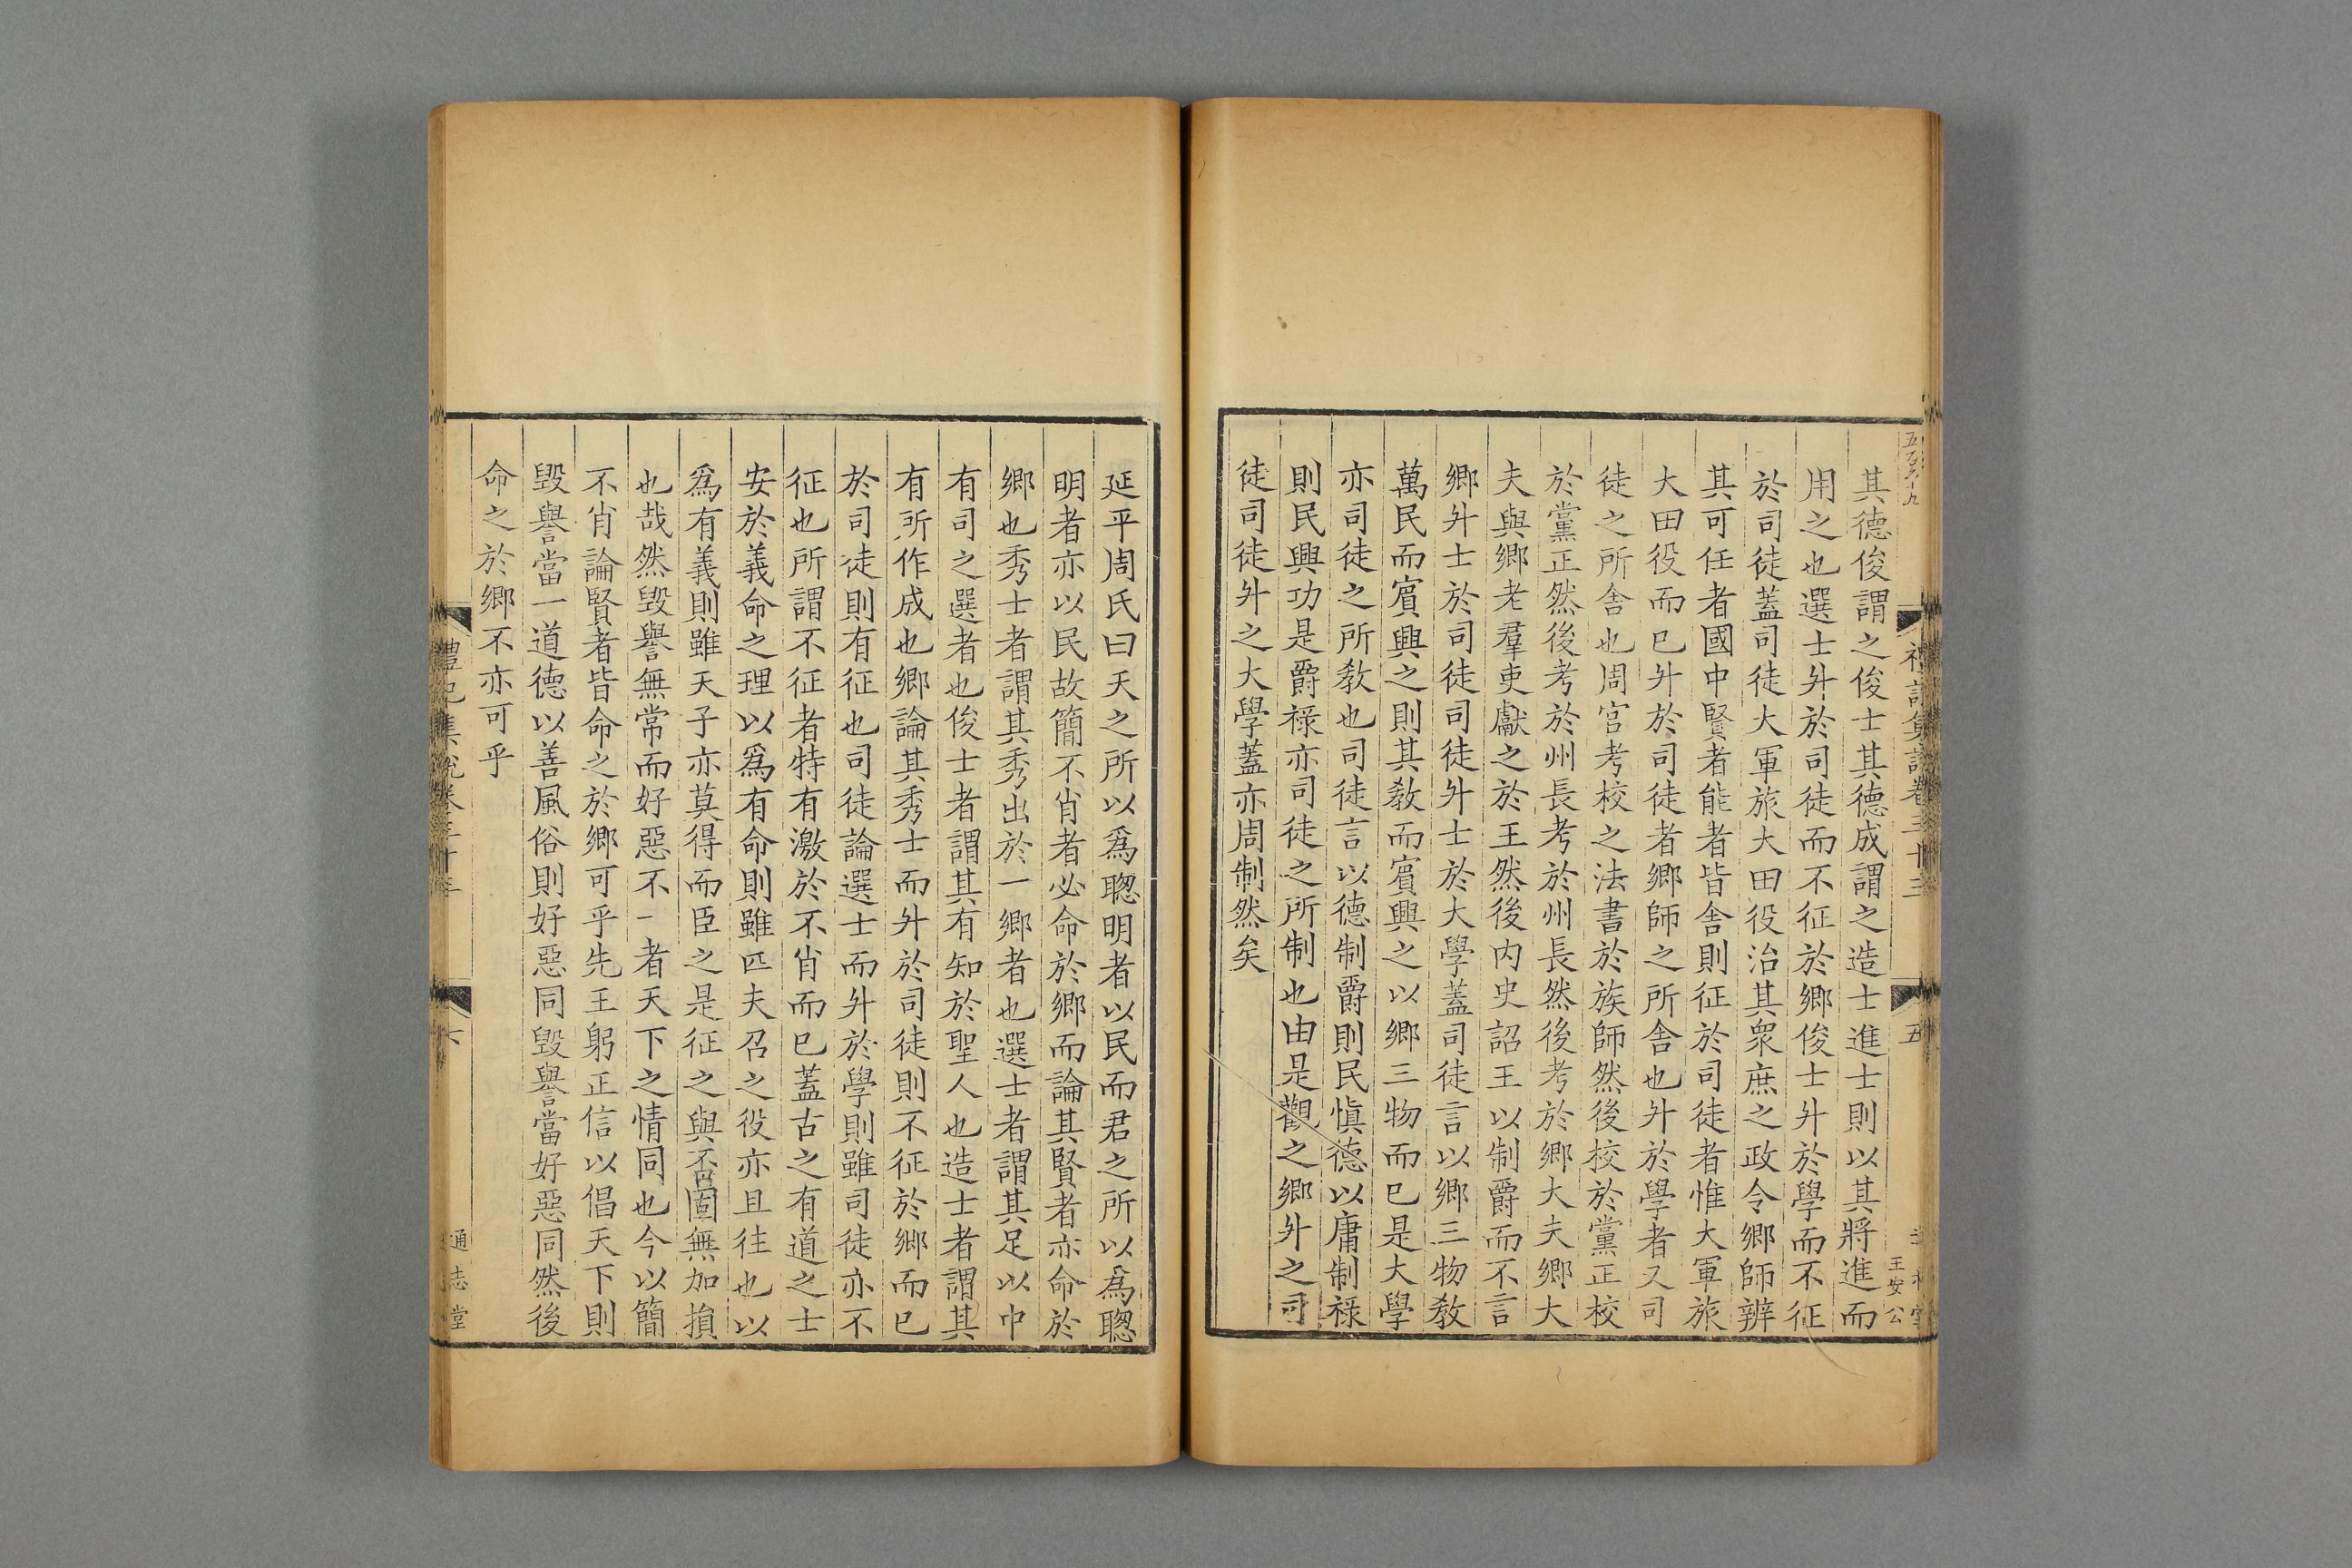 其德俊謂之俊士其德成謂之造士進士則以其將進而
用之也選士升於司徒而不征於鄉俊士升於學而不征
於司徒蓋司徒大軍旅大田役治其衆庶之政令鄉師辨
其可任者國中賢者能者皆舍則征於司徒者惟大軍旅
大田役而已升於司徒者鄉師之所舍也升於學者又司
徒之所舍也周官考校之法書於族師然後校於黨正校
於黨正然後考於州長考於州長然後考於鄉大夫鄉大
夫與鄉老羣吏獻之於王然後内史詔王以制爵而不言
鄉升士於司徒司徒升士於大學蓋司徒言以鄉三物敎
萬民而賔興之則其敎而賔興之以鄉三物而已是大學
亦司徒之所敎也司徒言以德制爵則民愼德以庸制祿
則民興功是爵祿亦司徒之所制也由是觀之鄉升之司
徒司徒升之大學蓋亦周制然矣
禮記集說卷三十三
五
王安公
延平周氏曰天之所以爲聰明者以民而君之所以爲聰
明者亦以民故簡不肖者必命於鄉而論其賢者亦命於
鄉也秀士者謂其秀出於一鄉者也選士者謂其足以中
有司之選者也俊士者謂其有知於聖人也造士者謂其
有所作成也鄉論其秀士而升於司徒則不征於鄉而已
於司徒則有征也司徒論選士而升於學則雖司徒亦不
征也所謂不征者特有激於不肖而已蓋古之有道之士
安於義命之理以爲有命則雖匹夫召之役亦且往也以
爲有義則雖天子亦莫得而臣之是征之與否固無加損
也哉然毀譽無常而好惡不一者天下之情同也今以簡
不肖論賢者皆命之於鄉可乎先王躬正信以倡天下則
毀譽當一道德以善風俗則好惡同毀譽當好惡同然後
命之於鄉不亦可乎
禮記集說卷三十三
六
通志堂